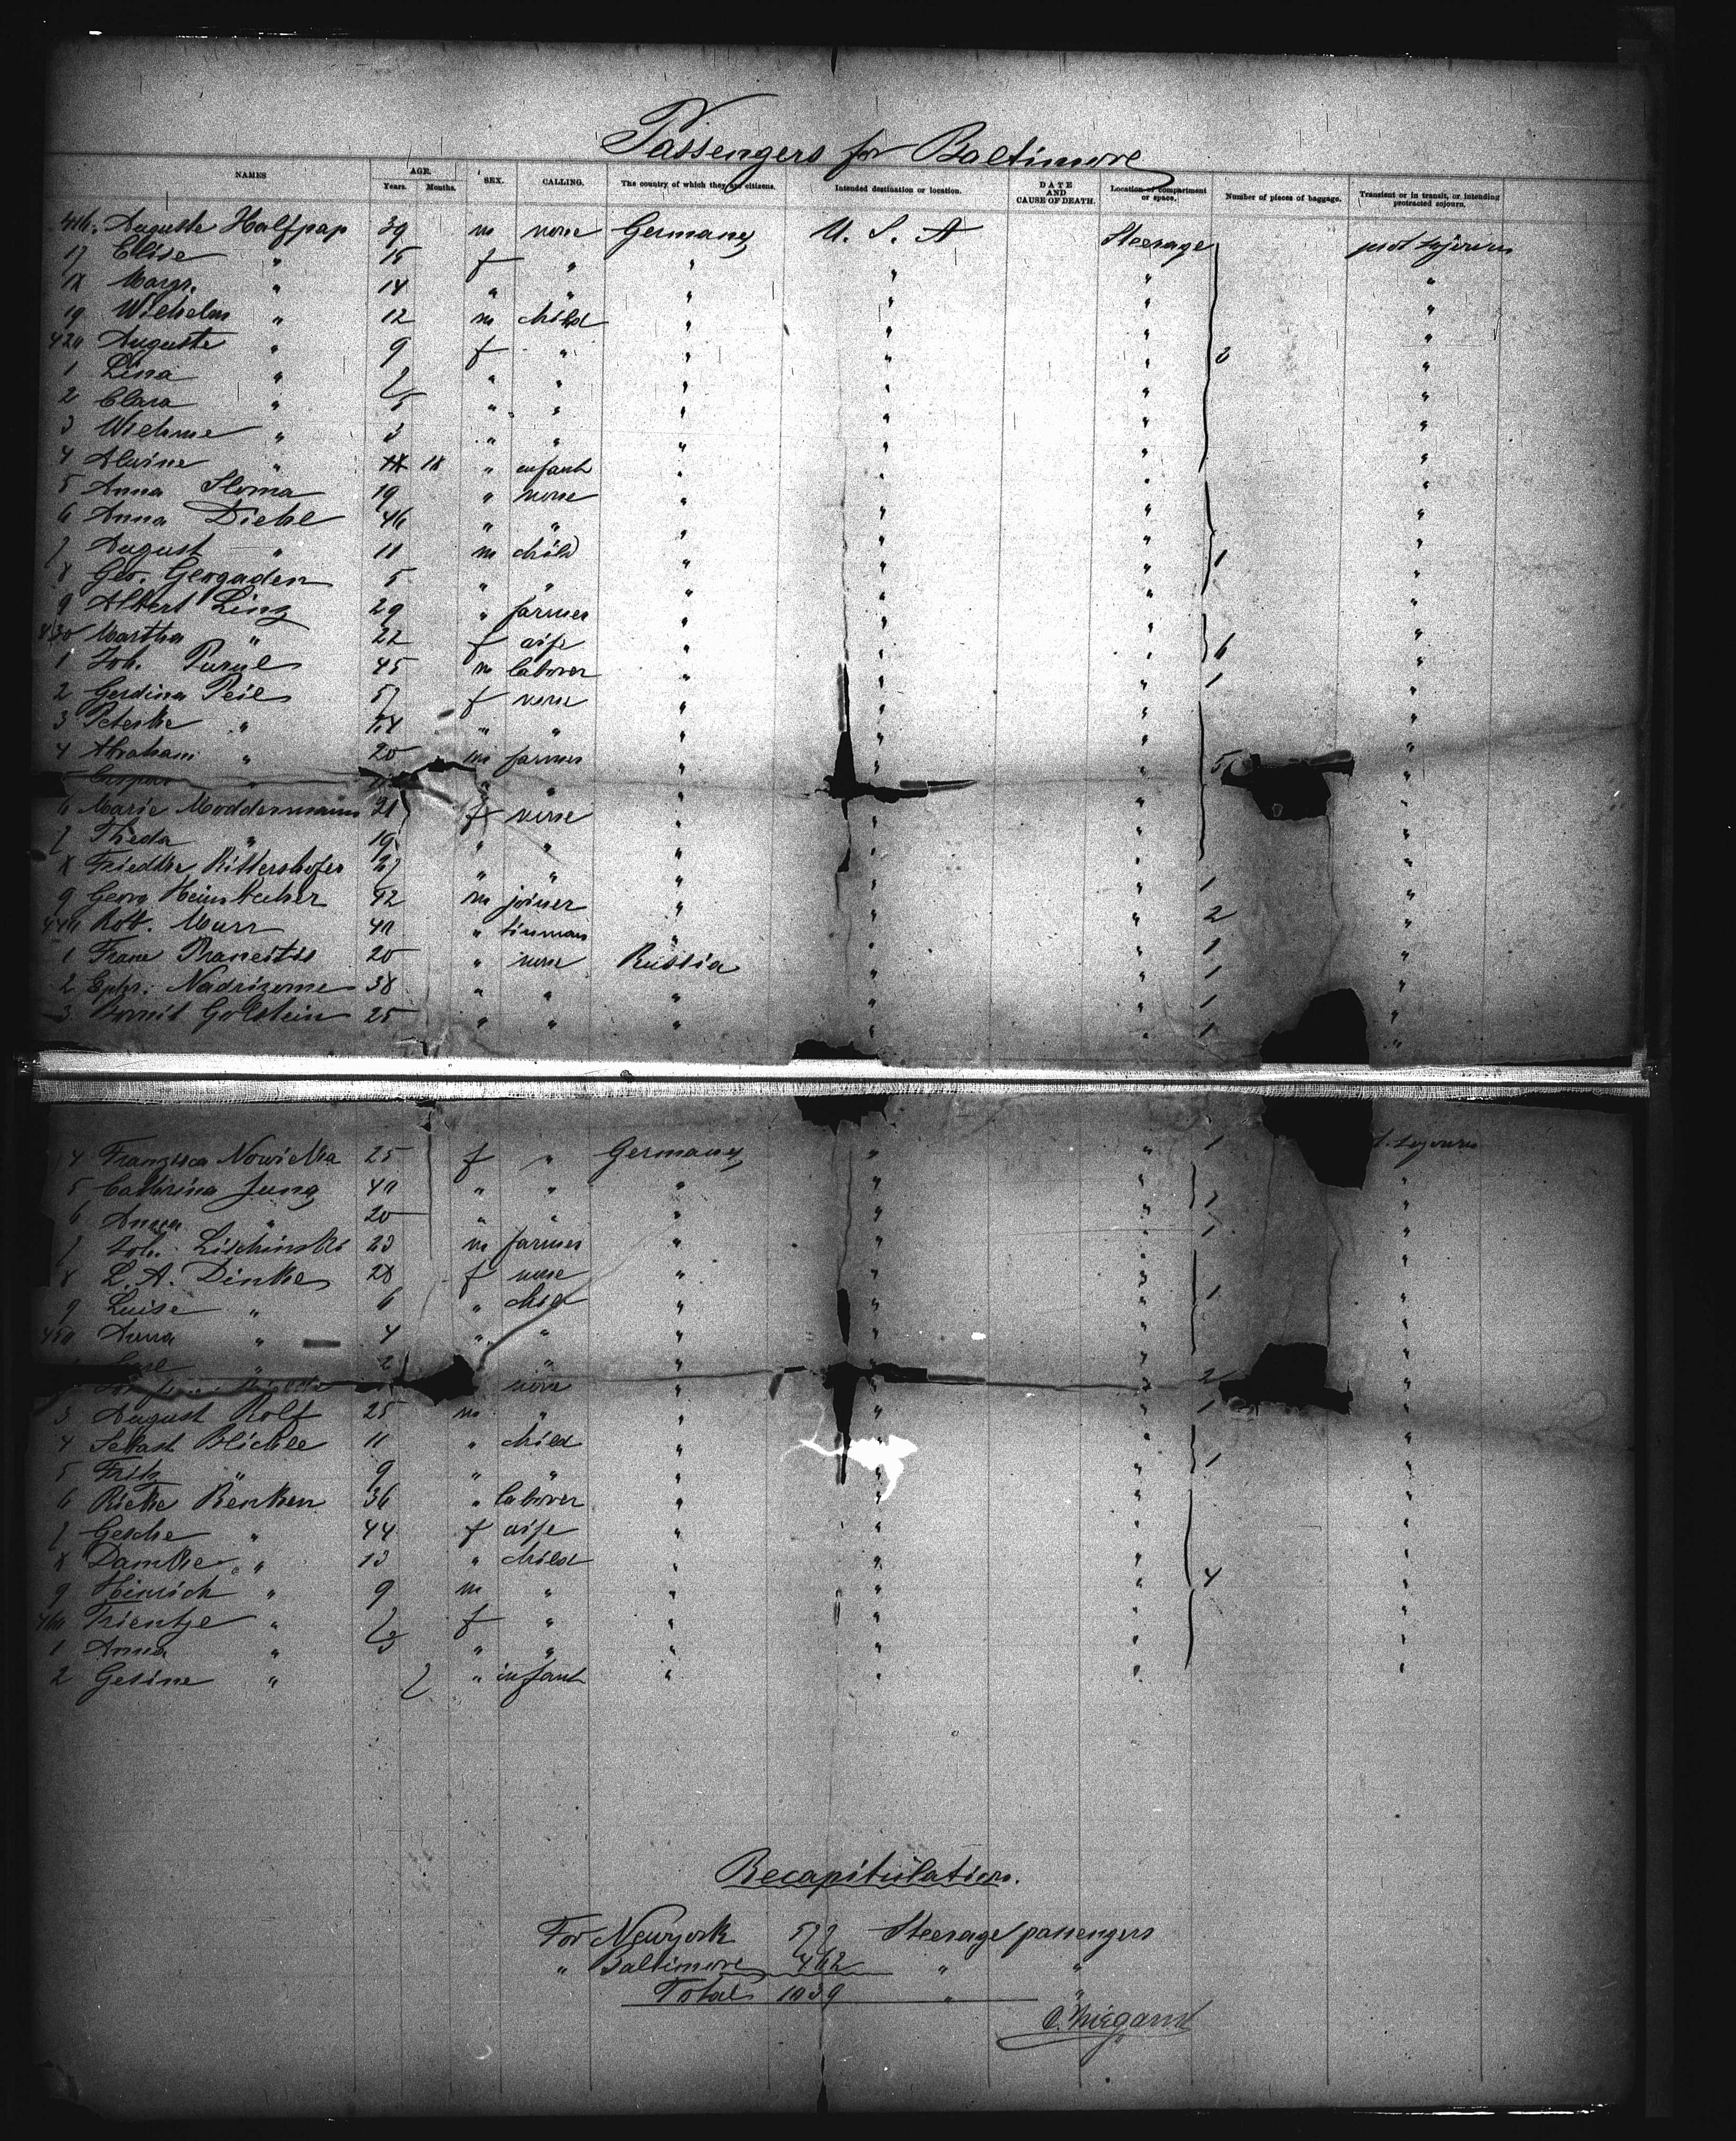 Passengers for Baltimore
NAMES AGE. Years. Months. SEX. CALLING. The country of which they are citizens. Intended destination or location. DATE AND CAUSE OF DEATH. Location of compartment or space. Number of pieces of baggage. Transient or in transit, or intending protracted sojourn.
416. Auguste Halfpap 39 m none Germany U. S. A Steerage prot sojourn
17 Elise " 15 f " " " " "
18 Margr. " 14 " " " " " "
19 Wilhelm " 12 m child " " " "
420 Auguste " 9 f " " " " 2 "
1 Lina " 7 " " " " " "
2 Clara " 5 " " " " " "
3 Wilhme " 3 " " " " " "
4 Alwine " 18 " infant " " " "
5 Anna Sloma 19 " none " " " "
6 Anna Diehl 46 " " " " " "
7 August " 11 m child " " " 1 "
8 Geo. Gergaden 5 " " " " " "
9 Albert Linz 29 " farmer " " " "
430 Martha " 22 f wife " " " 6 "
1 Joh. 45 m laborer " " " 1 "
2 Gerdina Peil 57 f none " " " "
3 " " " " " " "
4 Abraham " 20 m farmer " " " 5 "
Caspar " " " "
6 Marie Moddermann 21 f none " " " "
7 Theda " 19 " " " " " "
8 Friedke Rittershofer " " " " " 1 "
9 Georg 42 m joiner " " " 2 "
440 Rob. Murr 40 " tinman " " " 1 "
1 Franz 20 " none Russia " " 1 "
2 Ephr. 38 " " " " " 1 "
3 Golstein 25 " " " " " 1 "
4 Franzisca Nowicka 25 f " Germany " " 1 t. sojourn
5 Cathrina Jung 40 " " " " " 1 "
6 Anna " 20 " " " " " 1 "
7 Joh. Lischinski 23 m farmer " " " "
8 L. A. Dinke 28 f none " " " "
9 Luise " 6 " child " " " 1 "
450 Anna " 4 " " " " " "
Carl " 2 " " " " 2
none " " " 1
3 August Rolf 25 m " " " " "
4 Sebast Blickle 11 " child " " " 1 "
5 Fritz " 9 " " " " " "
6 Rieke Renken 36 " laborer " " " "
7 Gesche " 44 f wife " " " "
8 Damke " 13 " child " " " 4 "
9 Hinrich " 9 m " " " " "
460 Trientje " 7 f " " " " "
1 Anna " 3 " " " " " "
2 Gesine " 7 " infant " " " "
Recapitulation.
For Newyork 577 Steerage passengers
" Baltimore 462 " "
Total 1039 " "